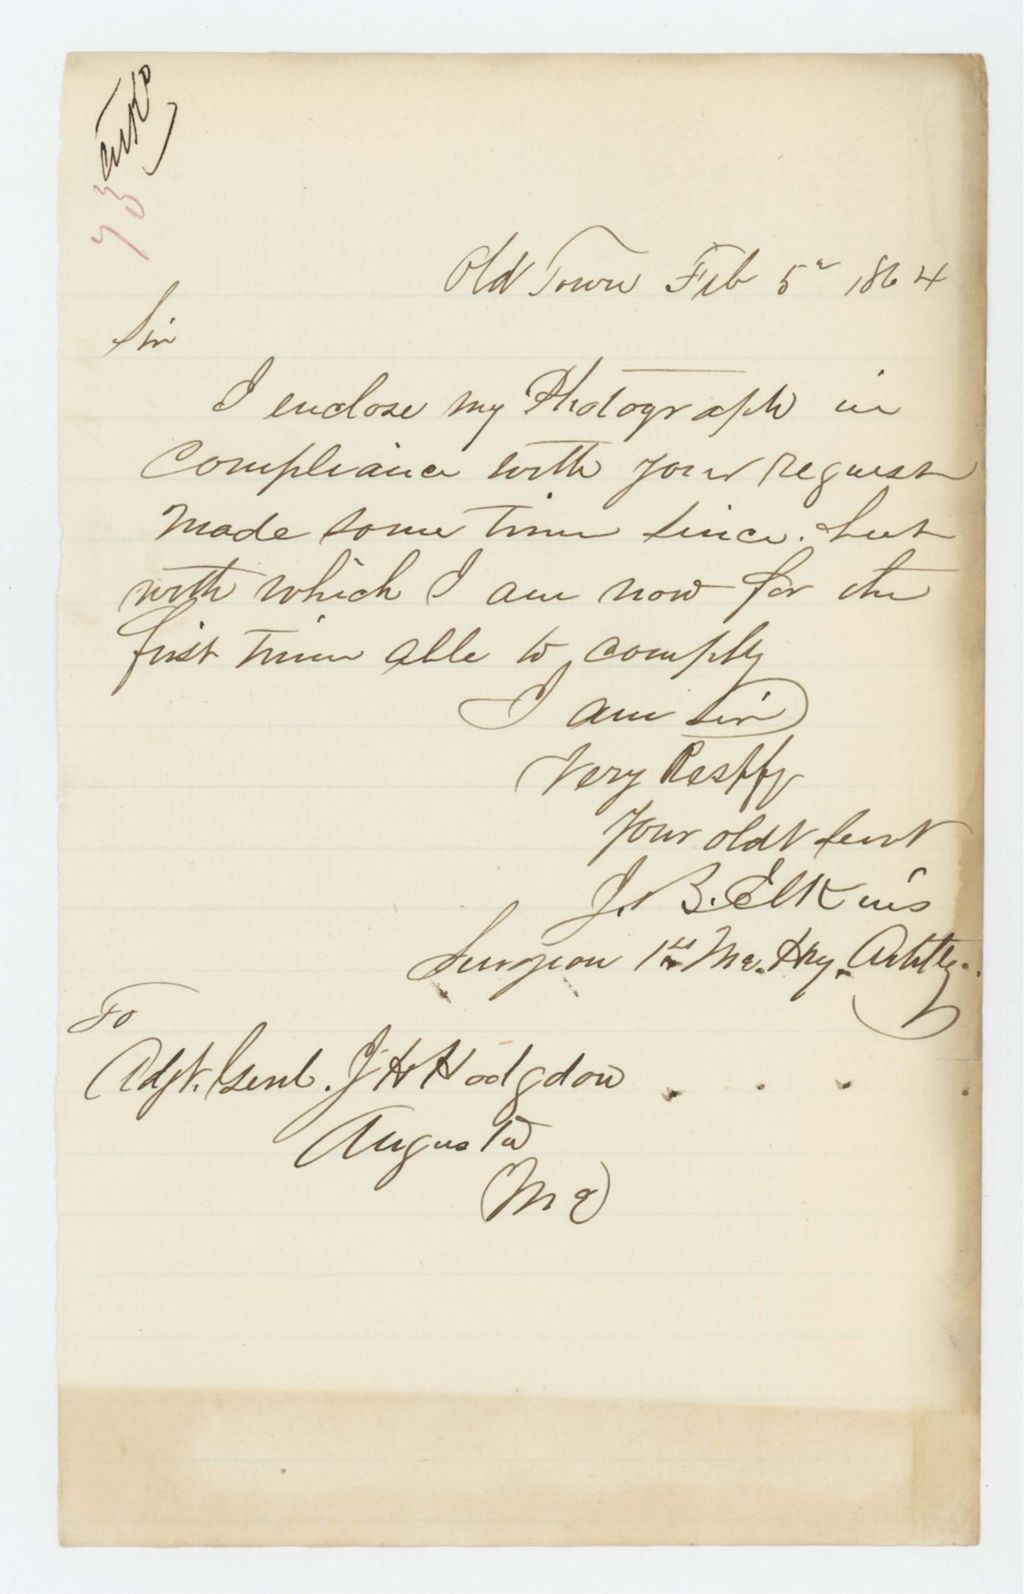 73
Old Town Feb 5" 1864
Sir
I enclose my Photograph in
compliance with your request
made some time since. but
with which I am now for the
first time able to comply
I am Sir
Very Respfy
Your obdt Servt
J. B. Elkins
Surgeon 1st Me. Hvy. Artilly.
To
Adjt. Genl. J H Hodgdon
Augusta
Me